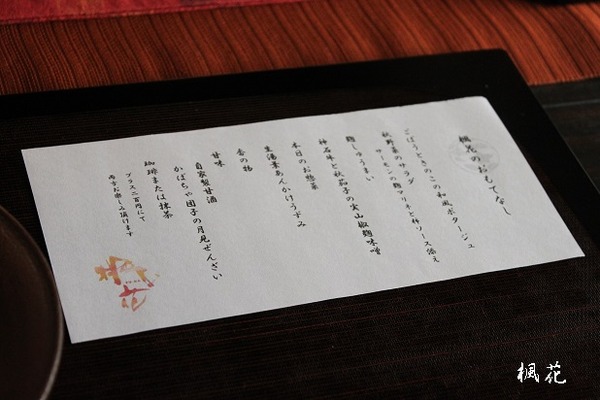 楓花のおもてなし
ごぼうときのこの和風ポタージュ
秋野菜のサラダ
サーモンの麹マリネと柿ソース添え
麹しゅうまい
神石牛と秋茄子の実山椒麹味噌
本日のお惣菜
生湯葉あんかけうずみ
香の物
甘味
自家製甘酒
かぼちゃ団子の月見ぜんざい
珈琲または抹茶
プラス二百円にて
両方お楽しみ頂けます
楓花